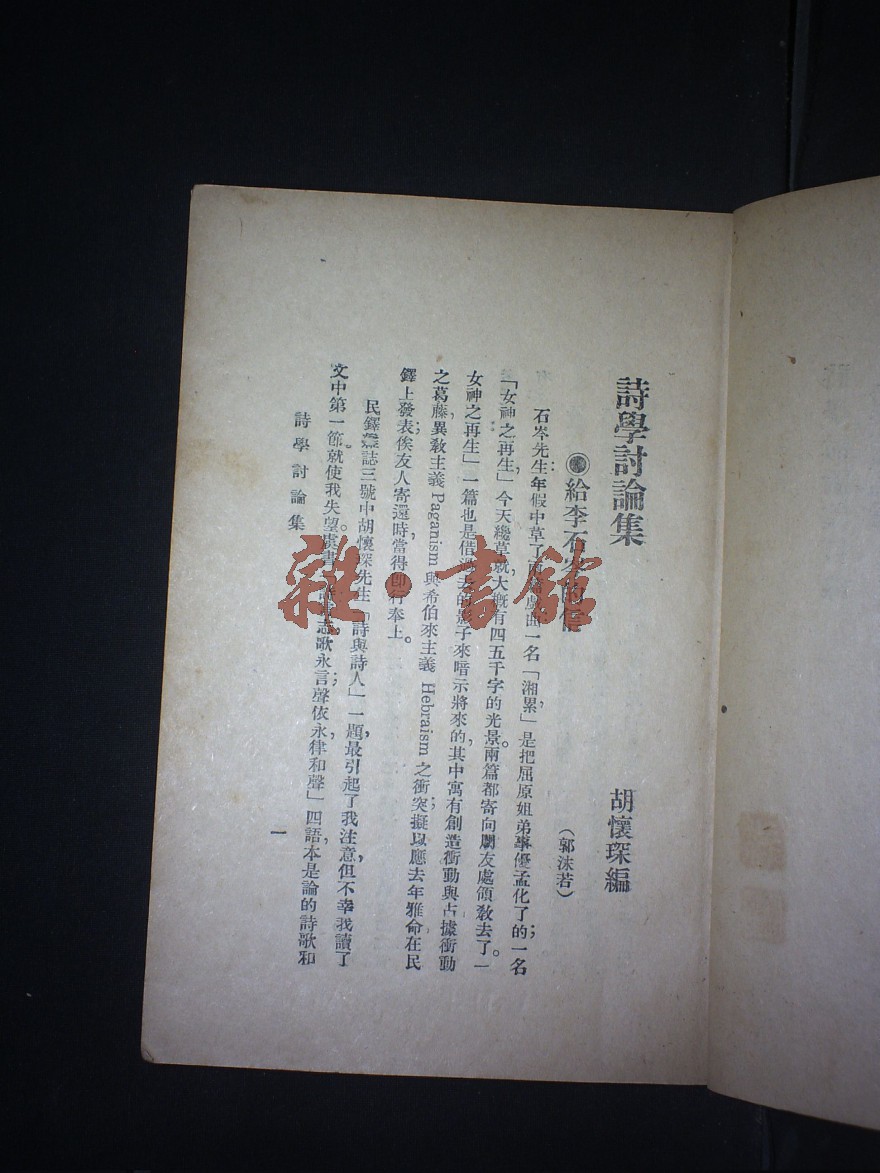 詩學討論集
胡懷琛編
給李石岑的信
（郭沫若）
石岑先生：年假中草了兩篇戲曲一名「湘累」，是把屈原姐弟事優孟化了的；一名
「女神之再生」，今天纔草就大概有四五千字的光景。兩篇都寄向友處領教去了。「
女神之再生」一篇也是借過去的影子來暗示將來的，其中寓有創造衝動與占據衝動
之葛藤，異教主義 Paganism 與希伯來主義 Hebraism 之衝突；擬以應去年雅命在民
鐸上發表；俟友人寄還時，當得卽行奉上。
民鐸雜誌三號中胡懷琛先生「詩與詩人」一題，最引起了我注意，但不幸我讀了
文中第一節就使我失望。虞書「詩言志，歌永言；聲依永，律和聲」四語，本是論的詩歌和
詩學討論集
一
雜·書館